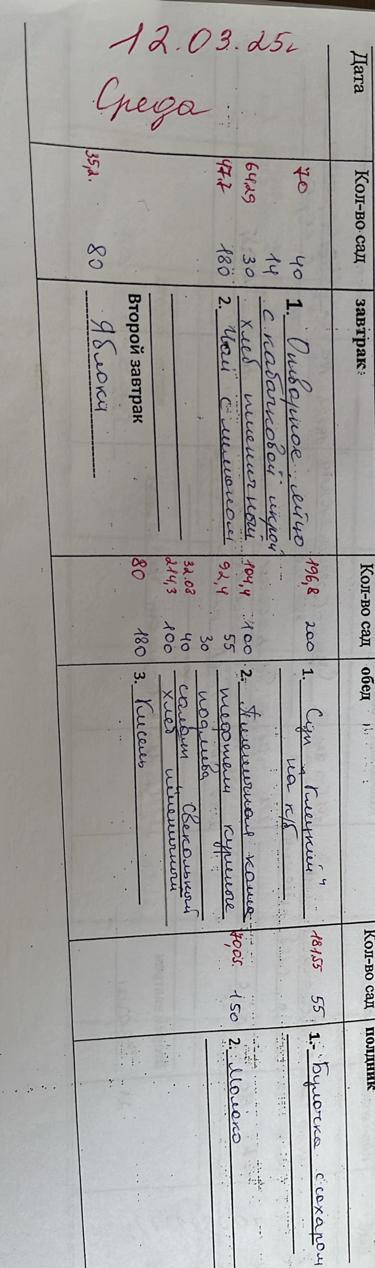 Дата
12.03.25г
Среда
Кол-во сад
70 40
14
64,29 30
47,7 180
35,2. 80
завтрак:
1. Отварное яйцо
с кабачковой икрой
хлеб пшеничный
2. Чай с лимоном
Второй завтрак
Яблоки
Кол-во сад
196,8 200
104,4 100
92,4 55
30
32.08 40
214,3 100
80 180
обед
1. Суп "Клецкий"
на к/б
2. Пшеничная каша
тефтели куриные
подлива
салат свекольный
хлеб пшеничный
3. Кисель
Кол-во сад
181,55 55
70,05. 150
полдник
1. Булочка с сахаром
2. Молоко